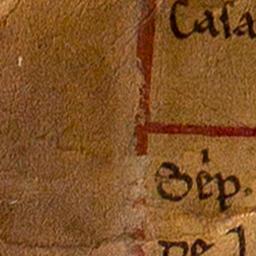 Casa
Sep.
de l